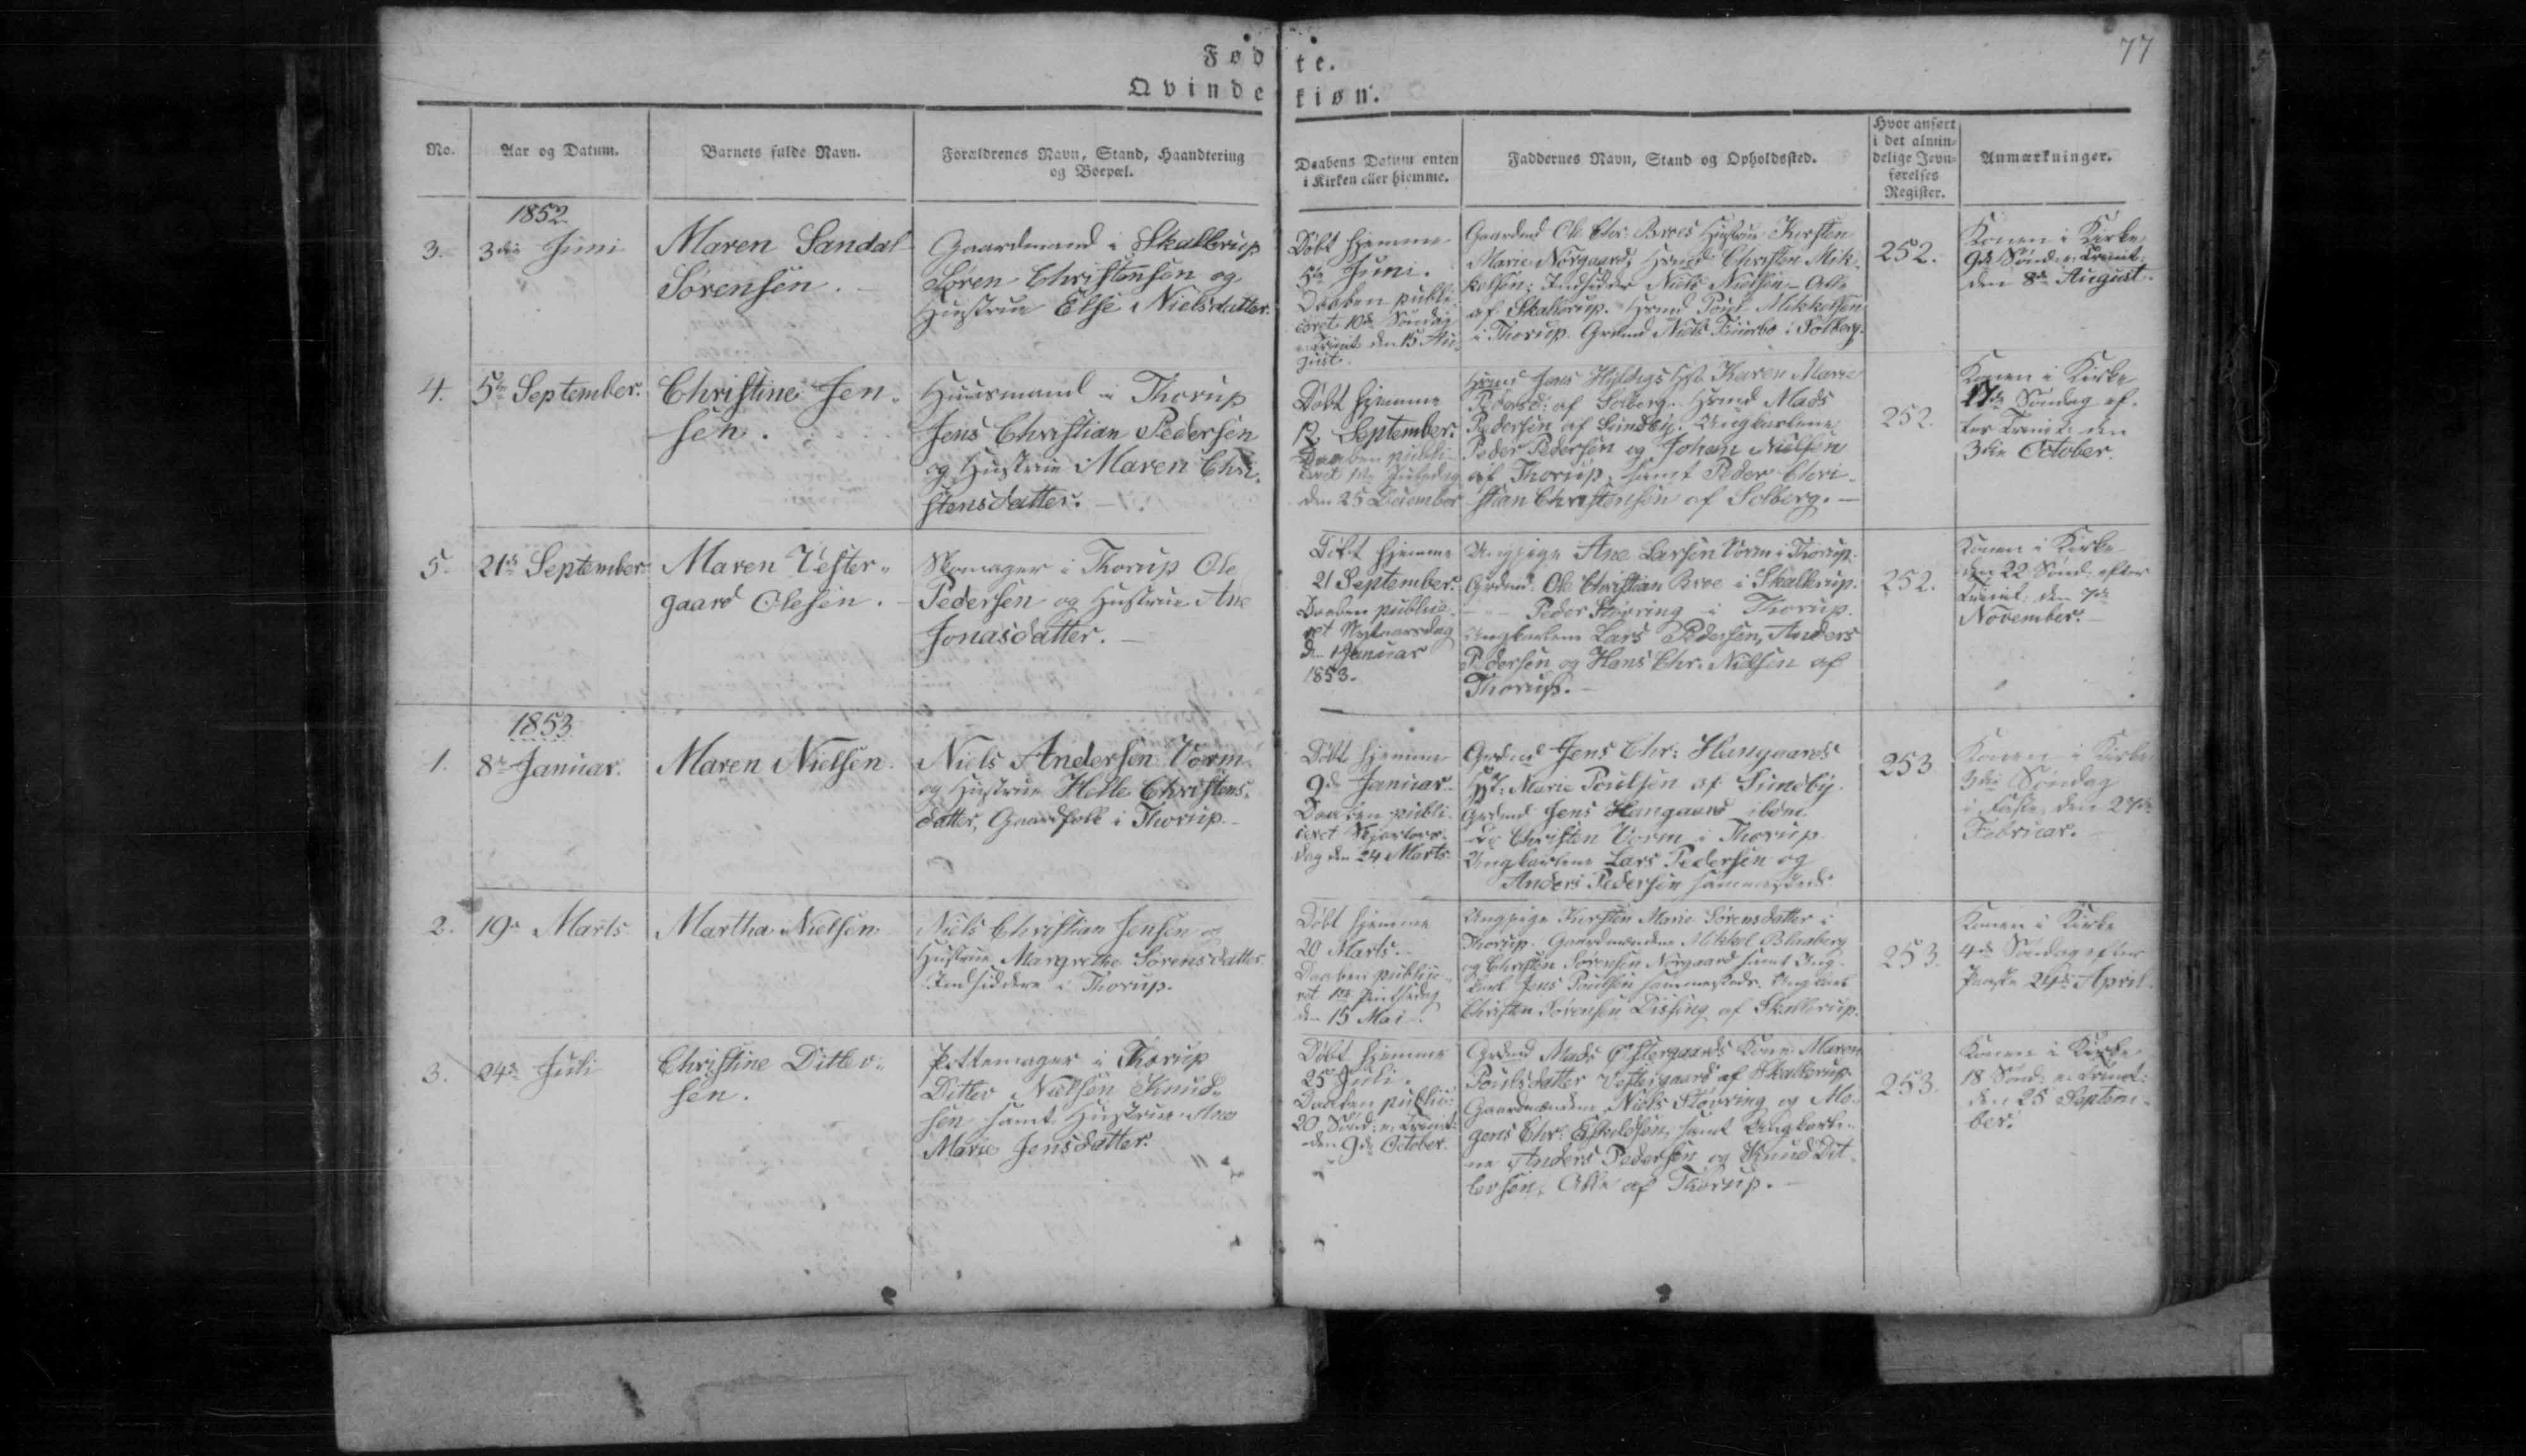 Fødte.
77
Qvindekiøn.
No.
Aar og Datum.
Barnets fulde Navn.
Forældrenes Navn, Stand, Haandtering
og Boepæl.
Daabens Datum enten
i Kirken eller hiemme.
Faddernes Navn, Stand og Opholdssted.
Hvor anført
i det almin-
delige Jevn-
førelses
Register.
Anmærkninger.
1852
3.
3die Juni
Maren Sandal
Sørensen.
Gaardmand i Skallerup
Søren Christensen og
Hustrue Else Nielsdatter.
Døbt hjemme
5te Juni.
Daaben publi-
ceret 10de Søndag
e: Trinit. den 15 Au-
gust.
Gaardmd Ole Chr. Broes Hustrue Kirsten
Marie Nørgaard; Hsmd Christen Mik-
kelsen; Indsidder Niels Nielsen - Alle
af Skallerup. Hsmd Poul Mikkelsen
i Thorup. Grdmd Niels i Solberg.
252.
Konen i Kirke
9de Sønd: e: Trinit:
den 8de August.
4.
5te September.
Christine Jen-
sen.
Huusmand i Thorup
Jens Christian Pedersen
og Hustrue Maren Chri-
stensdatter.
Døbt hjemme
12 September.
Daaben publi-
ceret 1ste Juledag
den 25 December
Hsmd Jens Hyldigs Hst. Karen Marie
Pedersd: af Solberg. Hsmd Mads
Pedersen af Sundby. Ungkarlene
Peder Pedersen og Johan Nielsen
af Thorup, samt Peder Chri-
stian Christensen af Solberg.
252.
Konen i Kirke
17de Søndag ef-
ter Trinit: den
3die October.
5.
21de September
Maren Vester-
gaard Olesen.
Skomager i Thorup Ole
Pedersen og Hustrue Ane
Jonasdatter.
Døbt hjemme
21 September.
Daaben publice-
ret Nytaarsdag
d. 1 Januar
1853.
Ungpige Ane Larsen Vorm i Thorup.
Grdmd: Ole Christian Broe i Skallerup.
- " - Peder Støvring i Thorup.
Ungkarlene Lars Pedersen, Anders
Pedersen og Hans Chr. Nielsen af
Thorup.
252.
Konen i Kirke
den 22 Sønd: efter
Trinit: den 7de
November.
1853
1.
8de Januar.
Maren Nielsen.
Niels Andersen Vorm
og Hustrue Helle Christens-
datter, Gaardfolk i Thorup.
Døbt hjemme
9de Januar.
Daaben publi-
ceret Skjærtors-
dag den 24 Marts.
Grdmd Jens Chr: Hangaards
Hst: Marie Poulsen af Sundby.
Grdmd Jens Hangaard ibdm.
Do Christen Vorm i Thorup
Ungkarlene Lars Pedersen og
Anders Pedersen sammesteds.
253
Konen i Kirke
3die Søndag
i Faste den 27de
Februar.
2.
19de Marts
Martha Nielsen
Niels Christian Jensen og
Hustrue Margrethe Sørensdatter
Indsiddere i Thorup.
Døbt hjemme
20 Marts.
Daaben publice-
ret 1ste Pintsedag
den 15 Mai.
Ungpige Kirsten Marie Sørensdatter i
Thorup. Gaardmændene Mikkel Blaaberg
og Christen Sørensen Nørgaard samt Ung-
karl Jens Poulsen sammesteds. Ungkarl
Christen Sørensen Dissing af Skallerup.
253.
Konen i Kirke
4de Søndag efter
Paaske 24de April.
3.
24de Juli
Christine Ditlev-
sen.
Pottemager i Thorup
Ditlev Nielsen Knud-
sen samt Hustrue Ane
Marie Jensdatter.
Døbt hjemme
25 Juli.
Daaben public:
20 Sønd: e: Trinit:
den 9de October.
Grdmd Mads Østergaards Kone Maren
Poulsdatter Vestergaard af Skallerup.
Gaardmændene Niels Støvring og Mo-
gens Chr: Eskildsen, samt Ungkarle-
ne Anders Pedersen og Knud Dit-
levsen, Alle af Thorup.
253.
Konen i Kirke
18 Sønd: e: Trinit:
den 25 Septem-
ber.